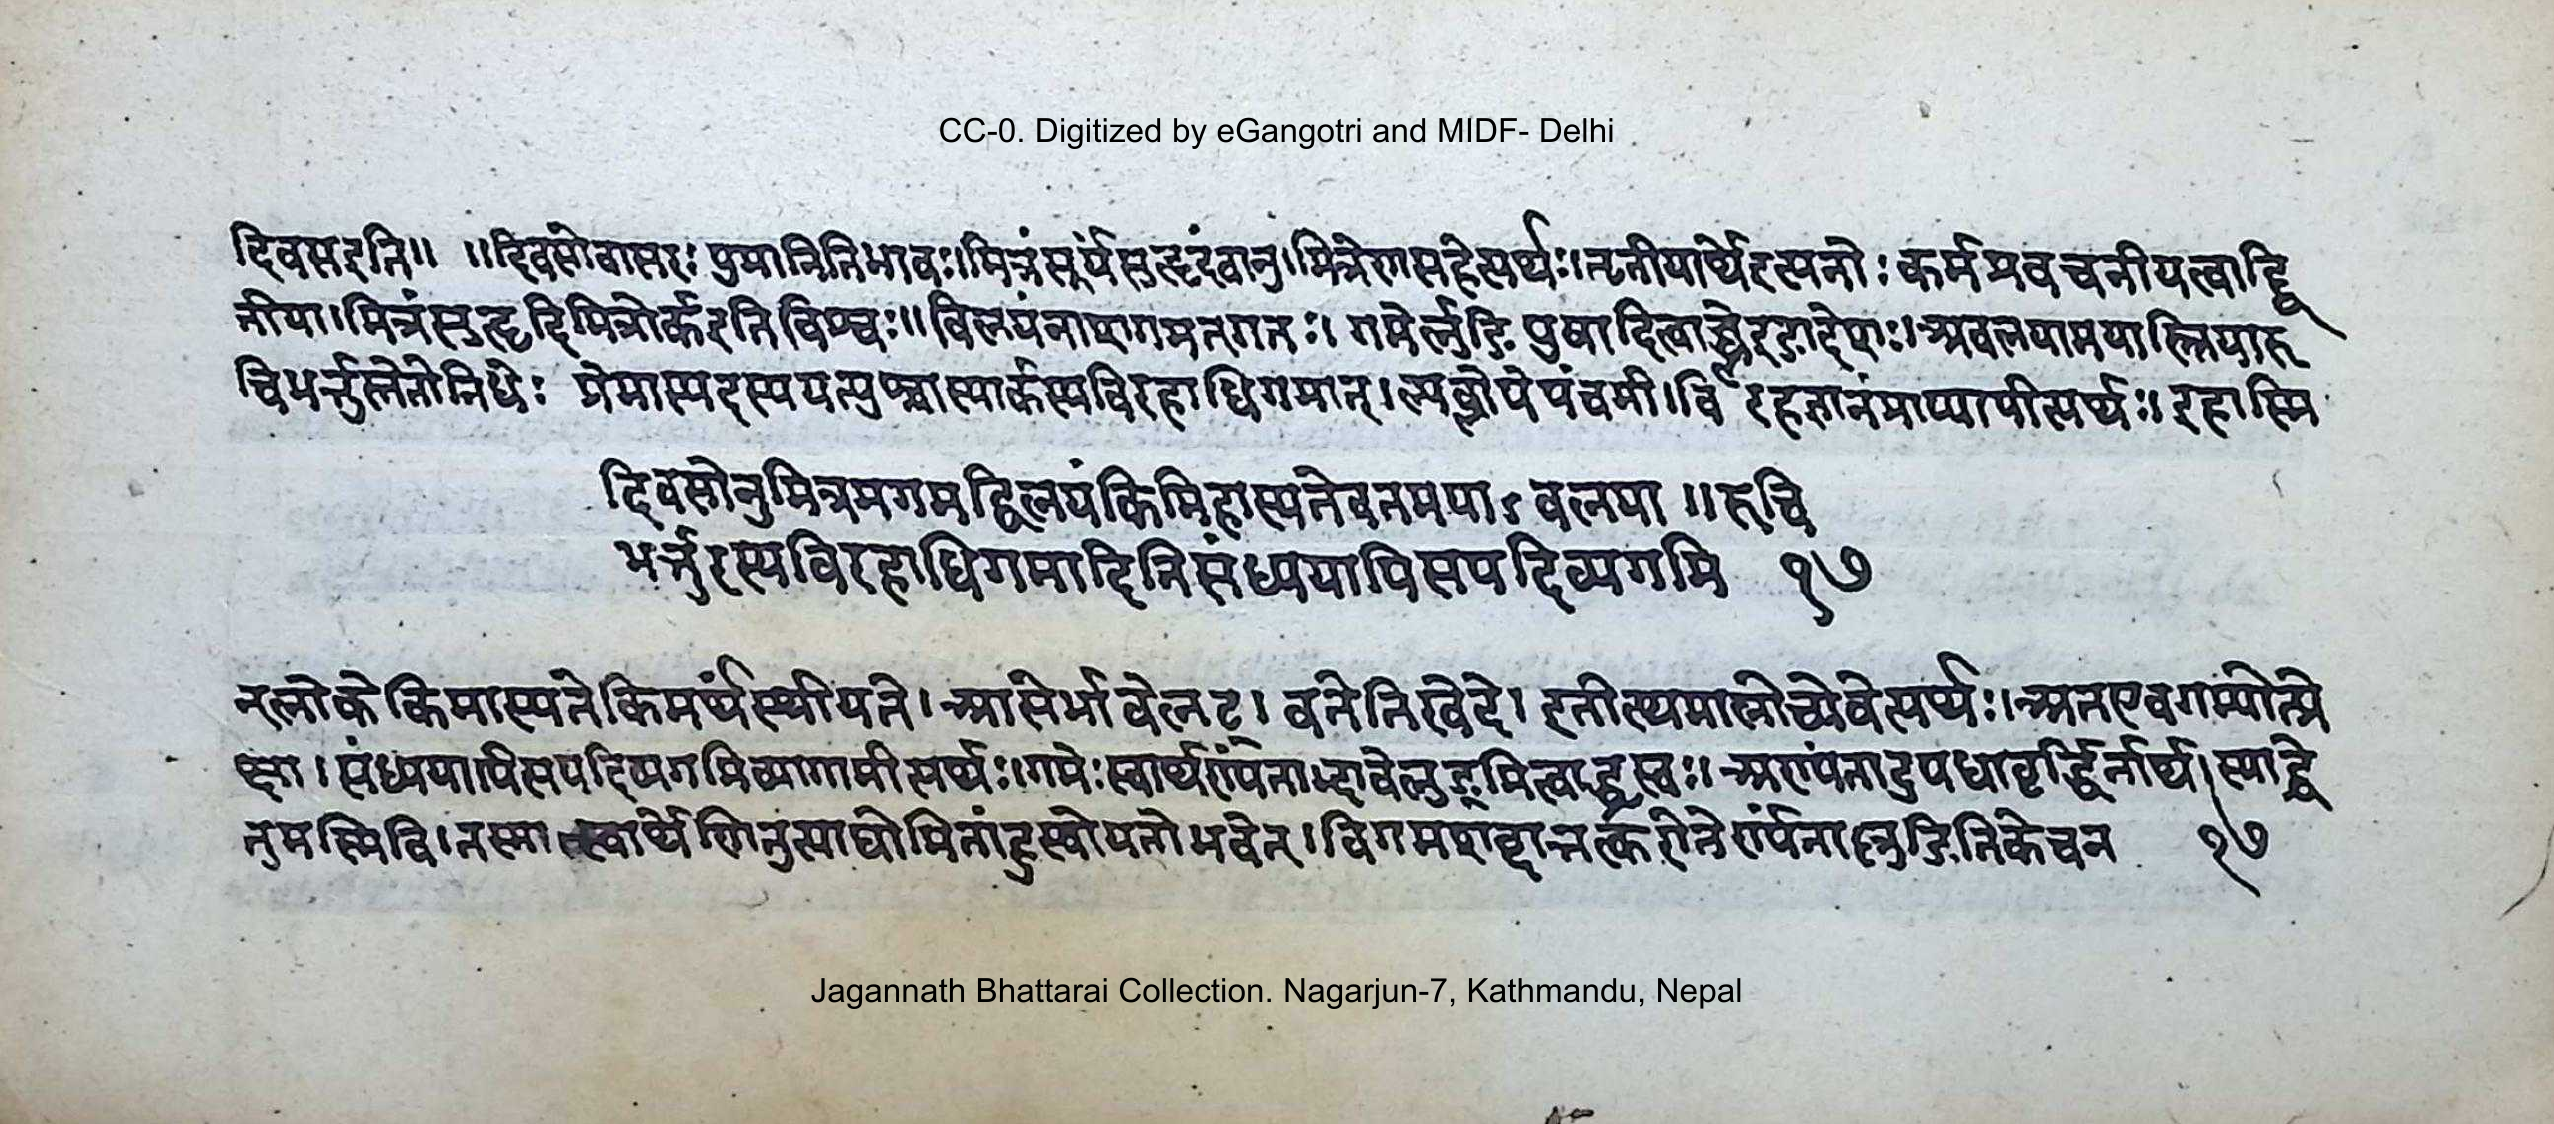 CC-0. Digitized by eGangotri and MIDF- Delhi
दिवसइति॥ ॥दिवसोवासरः पुमानितिभावः॥मित्रंसूर्यंसुहृदंवानु।मित्रेणसहेत्यर्थः।तृतीयार्थेइत्यनोः कर्मप्रवचनीयत्वाद्द्वि
तीया।मित्रंसुहृदिमित्रोर्कइतिविश्वः॥विलयंनाशमगमत्गतः। गमेर्लुङि पुषादित्वाच्च्लेरङादेशः।अवलयामयास्त्रियारु
चिभर्त्तुस्तेजोनिधेः प्रेमास्पदस्ययत्युश्चास्यार्कस्यविरहाधिगमात्।ल्यब्लोपेपंचमी।विरहज्ञानंप्राप्यापीत्यर्थः॥इहास्मि
दिवसोनुमित्रमगमद्विलयंकिमिहास्यतेवतमयाऽवलया ॥रुचि
भर्त्तुरस्यविरहाधिगमादितिसंध्ययापिसपदिव्यगमि १७
नलोके किमास्यतेकिमर्थंस्थीयते।आसेर्भावेलट्। वतेतिखेदे। इतीत्थमालोच्येवेत्यर्थः।अतएवगम्योत्प्रे
क्षा।संध्ययापिसपदिव्यगमिव्यागामीत्यर्थः।गमेःस्वार्थण्यंताद्भावेलुङ्मित्वाद्ध्रस्वः। अण्यंतादुपधावृद्धिर्नार्थ।स्याद्धे
तुमस्मिवि।तस्मात्स्वार्थेणिनुत्पाद्योमितांह्रस्वोयतोभवेत्।विगमशब्दात्तत्करोतेर्ण्यंताल्लुङितिकेचन १७
Jagannath Bhattarai Collection. Nagarjun-7, Kathmandu, Nepal